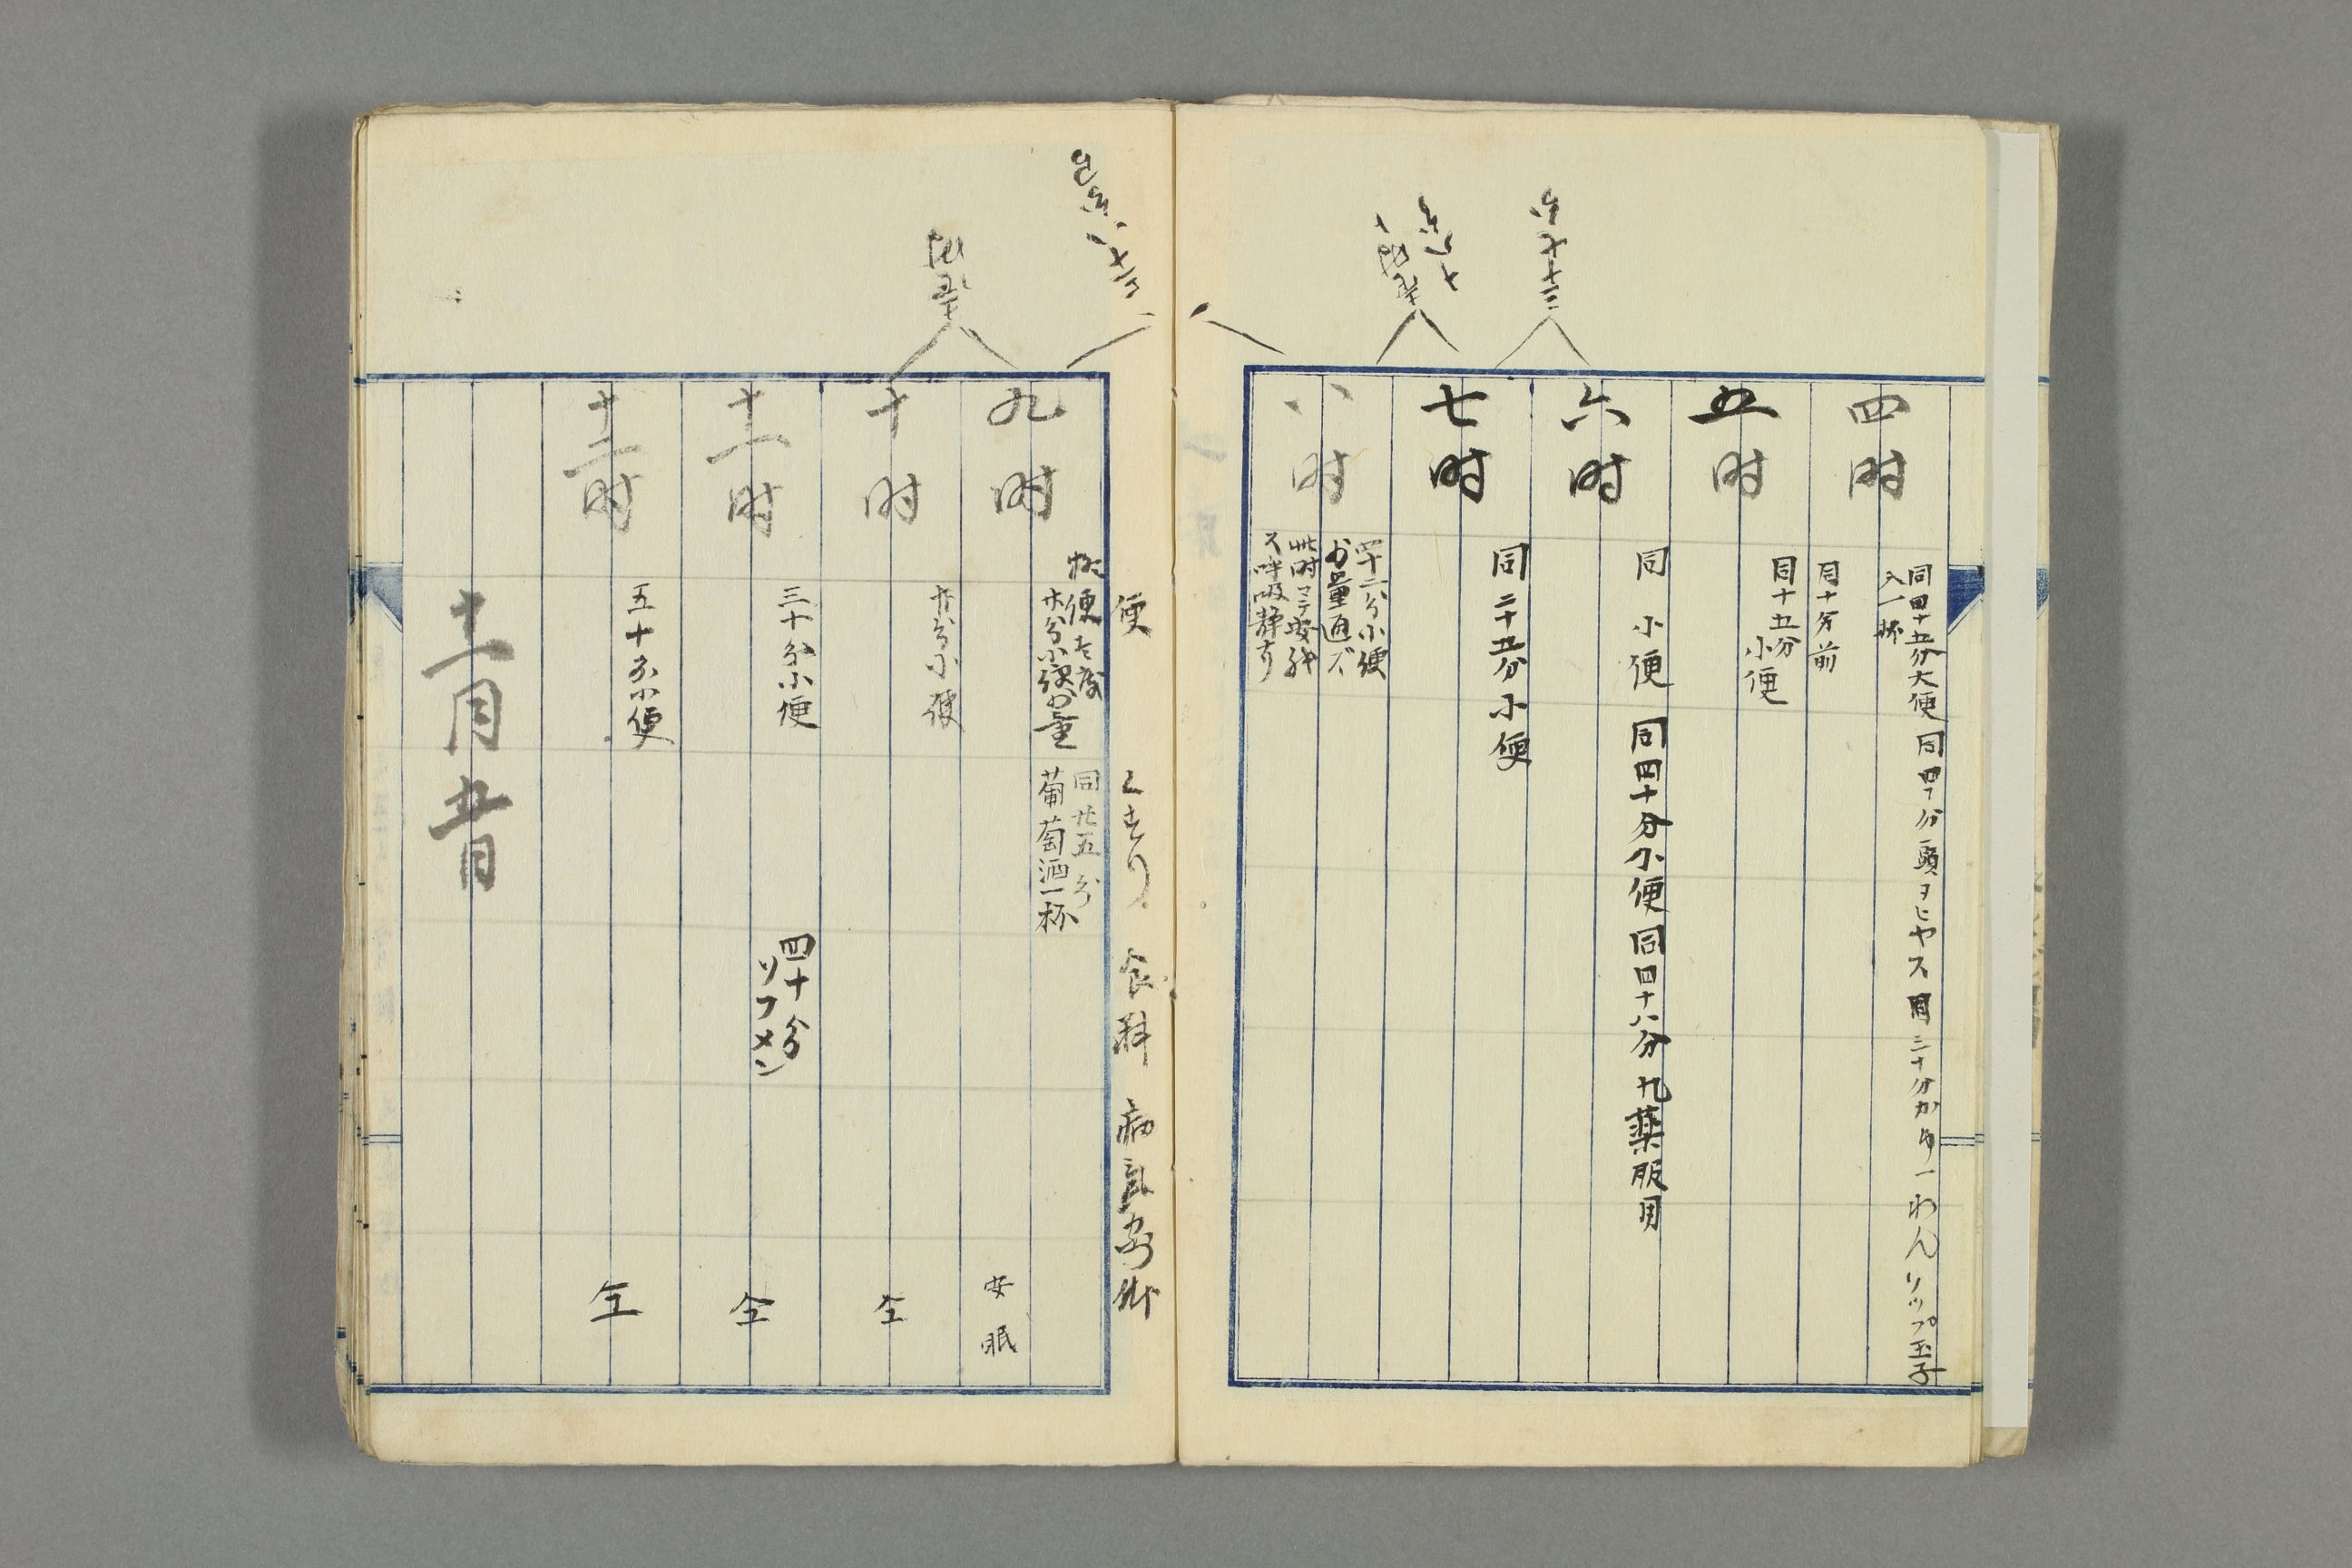 四时
同四十五分大便 同四十分頭ヲヒヤス 同三十分かゆ一わんソップ玉子
入一杯
五时
同十分前
同十五分
小便
六时
同 小便 同四十分小便 同四十八分丸薬服用
七时
同二十五分小便
八时
四十二分小便
少量通ズ
此时マテ安眠
ス呼吸静なり
便 くすり 食料 病気
九时
廿分小便少量
同廿五分
葡萄酒一杯
安眠
十时
廿分小便
仝
十一时
三十分小便
四十分
ソフメン
仝
十二时
五十分小便
仝
十一月廿五日